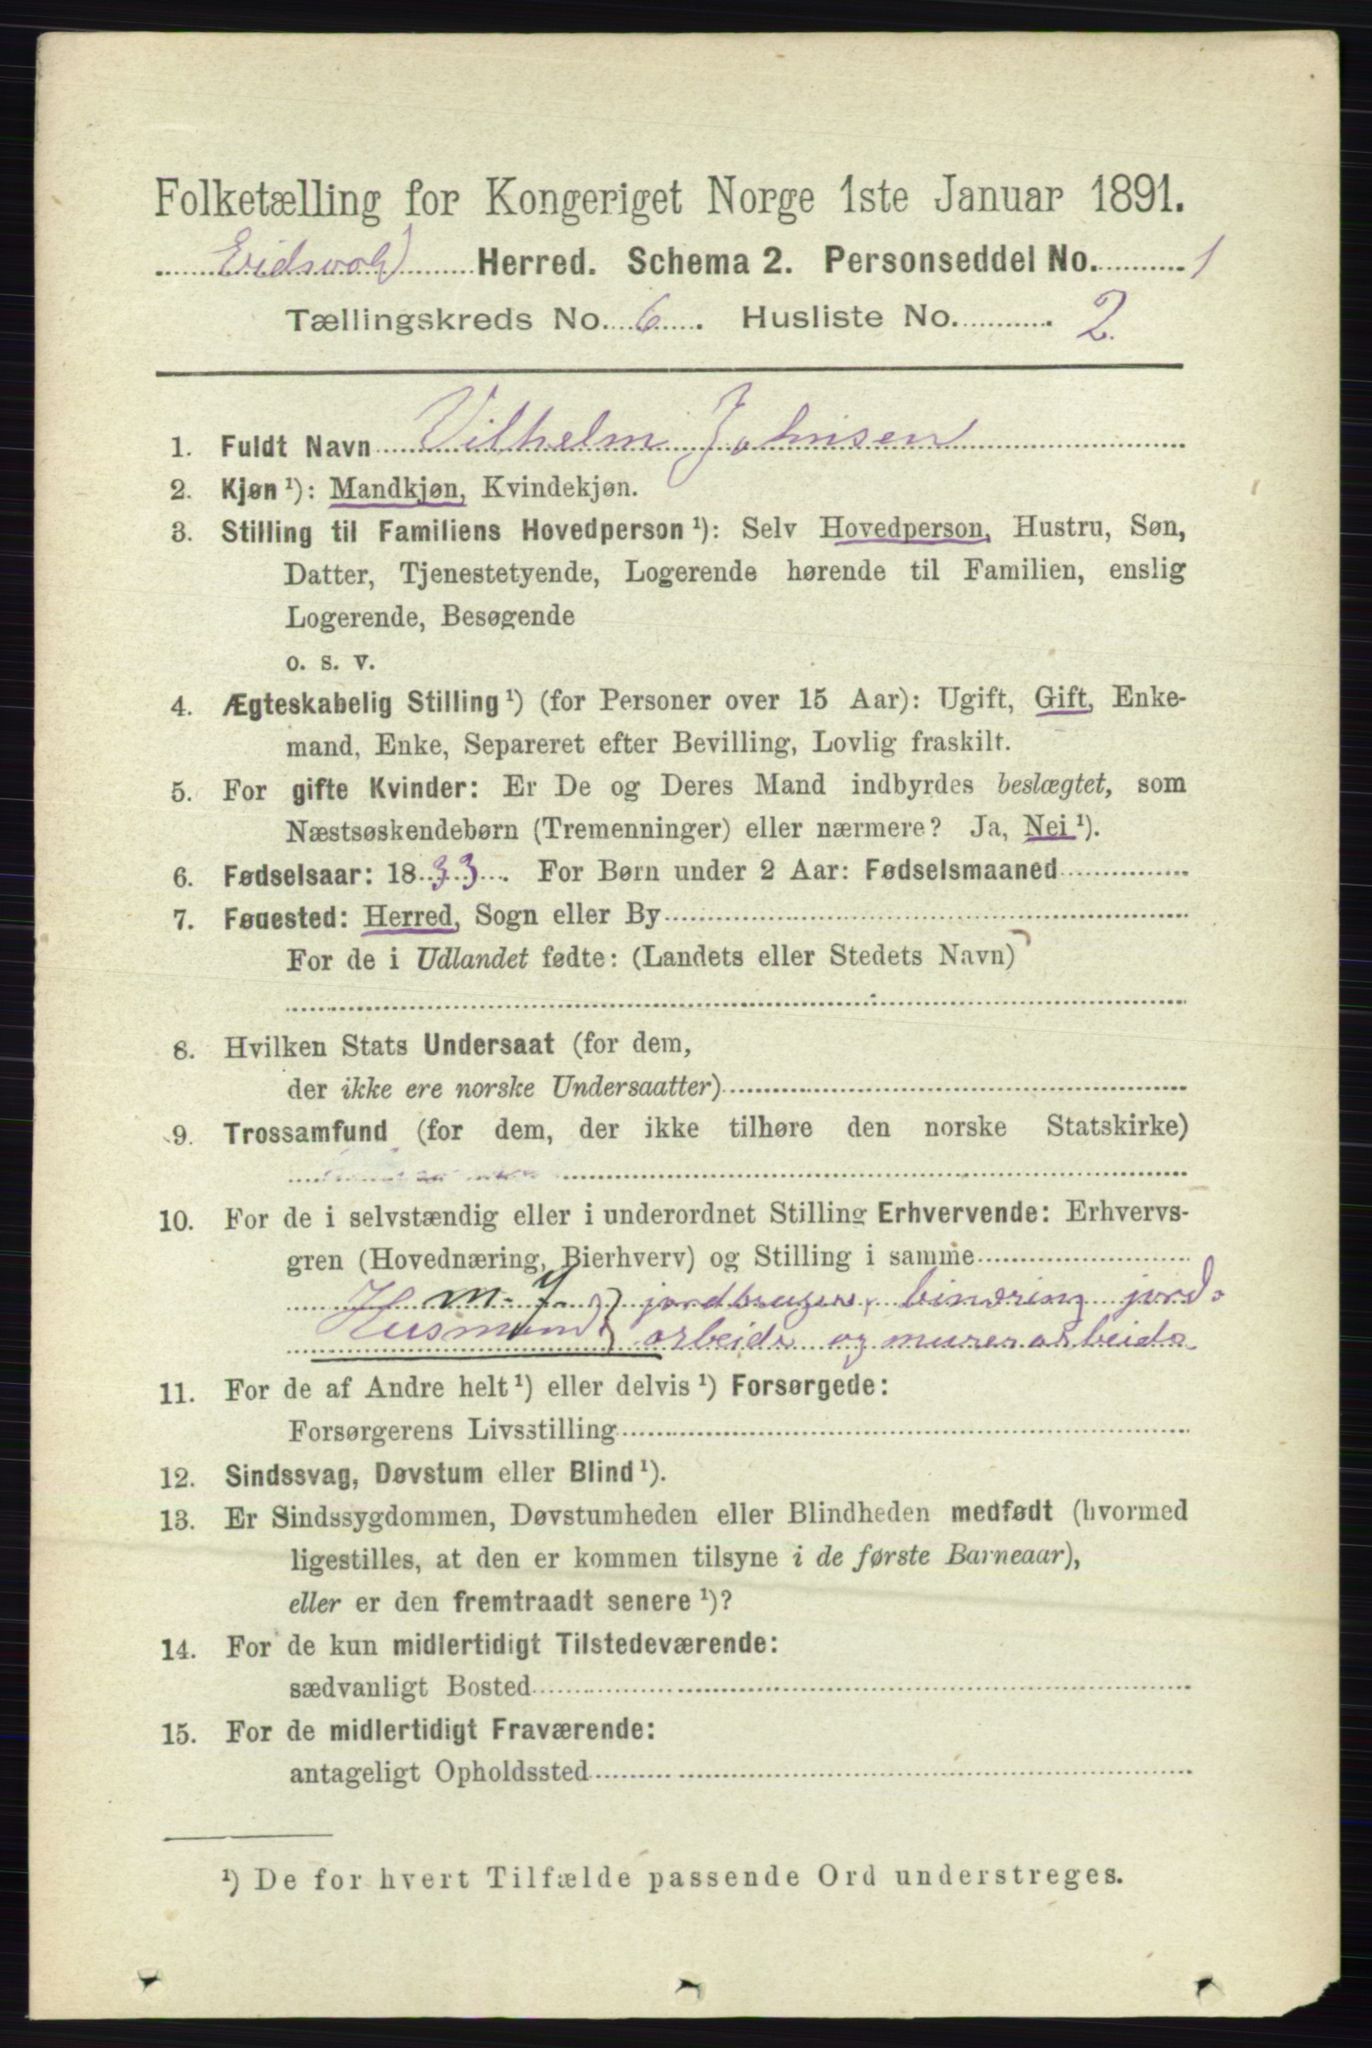 Folketælling for Kongeriget Norge 1ste Januar 1891.
Eidsvold Herred. Schema 2. Personseddel No. 1
Tællingskreds No. 6. Husliste No. 2
1. Fuldt Navn Vilhelm Johnsen
2. Kjøn ¹): Mandkjøn, Kvindekjøn.
3. Stilling til Familiens Hovedperson ¹): Selv Hovedperson, Hustru, Søn,
Datter, Tjenestetyende, Logerende hørende til Familien, enslig
Logerende, Besøgende
o. s. v.
4. Ægteskabelig Stilling ¹) (for Personer over 15 Aar): Ugift, Gift, Enke-
mand, Enke, Separeret efter Bevilling, Lovlig fraskilt.
5. For gifte Kvinder: Er De og Deres Mand indbyrdes beslægtet, som
Næstsøskendebørn (Tremenninger) eller nærmere? Ja, Nei ¹).
6. Fødselsaar: 1833. For Børn under 2 Aar: Fødselsmaaned
7. Føuested: Herred, Sogn eller By
For de i Udlandet fødte: (Landets eller Stedets Navn)
8. Hvilken Stats Undersaat (for dem,
der ikke ere norske Undersaatter)
9. Trossamfund (for dem, der ikke tilhøre den norske Statskirke)
10. For de i selvstændig eller i underordnet Stilling Erhvervende: Erhvervs-
gren (Hovednæring, Bierhverv) og Stilling i samme
H m. J. } jordbruger, binæring jord-
Husmand } arbeide og murerarbeide
11. For de af Andre helt ¹) eller delvis ¹) Forsørgede:
Forsørgerens Livsstilling
12. Sindssvag, Døvstum eller Blind ¹).
13. Er Sindssygdommen, Døvstumheden eller Blindheden medfødt (hvormed
ligestilles, at den er kommen tilsyne i de første Barneaar),
eller er den fremtraadt senere ¹)?
14. For de kun midlertidigt Tilstedeværende:
sædvanligt Bosted
15. For de midlertidigt Fraværende:
antageligt Opholdssted
¹) De for hvert Tilfælde passende Ord understreges.